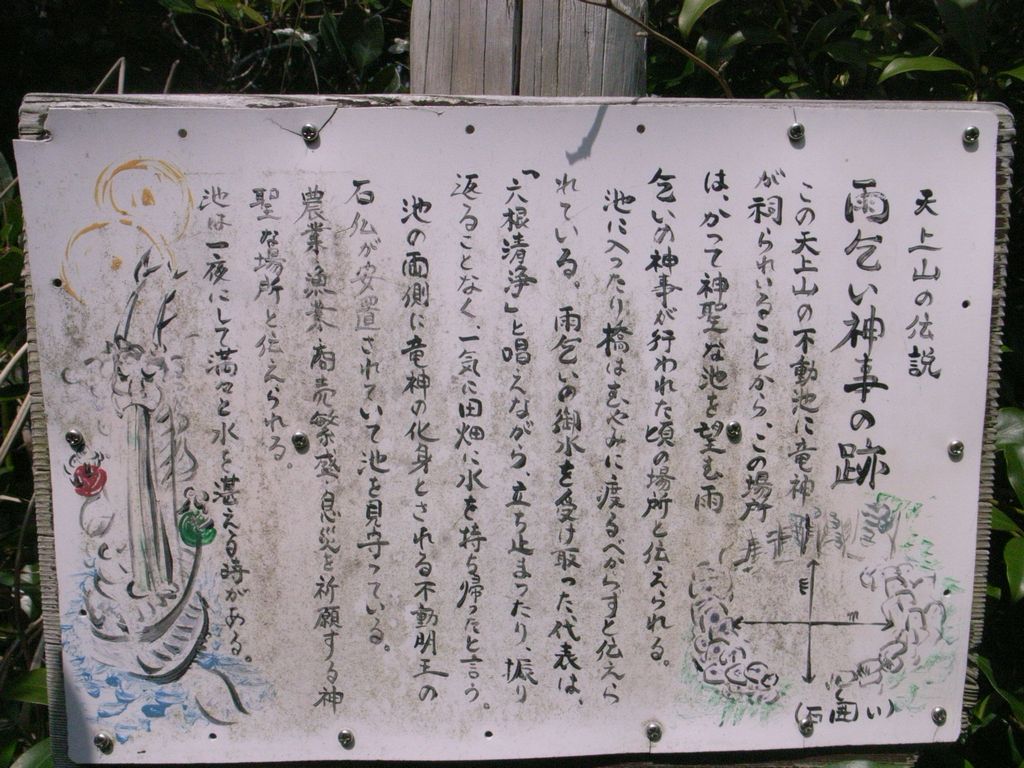 天上山の伝説
雨乞い神事の跡
この天上山の不動池に竜神
が祠られいることから、この場所
は、かつて神聖な池を望む雨
乞いの神事が行われた頃の場所と伝えられる。
池に入ったり橋はむやみに渡るべからずと伝えら
れている。雨乞いの御水を受け取った代表は、
「六根清浄」と唱えながら、立ち止まったり、振り
返ることなく、一気に田畑に水を持ち帰ったと言う。
池の両側に竜神の化身とされる不動明王の
石仏が安置されていて池を見守っている。
農業漁業商売繁盛息災を祈願する神
聖な場所と伝えられる。
池は一夜にして満々と水を湛える時がある。
(石囲い)